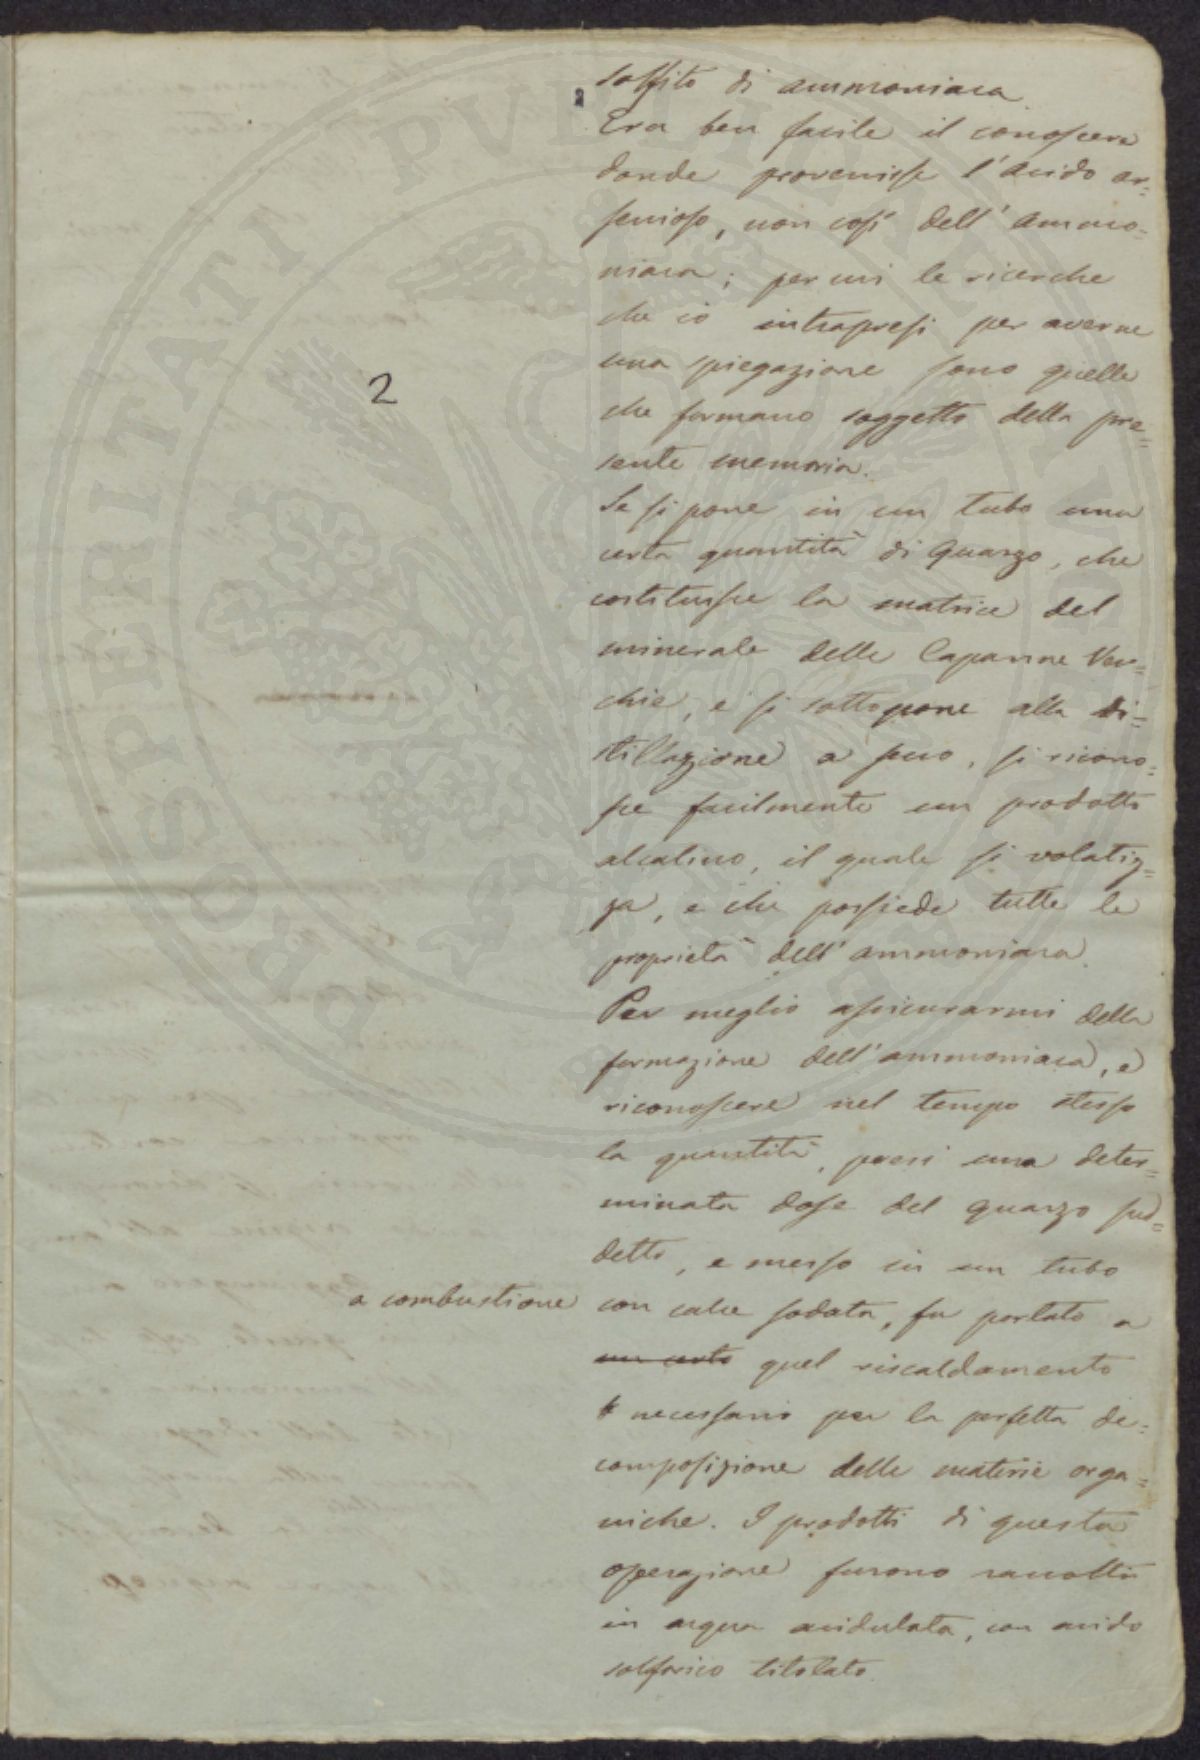 solfito di ammoniaca.
Era ben facile il conoscere
donde provenisse l'acido ar=
senioso, non così dell'ammo=
niaca; per cui le ricerche
che io intrapresi per averne
una spiegazione sono quelle
2
che formano soggetto della pre=
sente memoria.
Se si pone in un tubo una
certa quantità di quarzo, che
costituisce la matrice del
minerale delle Capanne Vec=
chie, e si sottopone alla di=
stillazione a secco, si ricono=
sce facilmente un prodotto
alcalino, il quale si volatiz=
za, e che possiede tutte le
proprietà dell'ammoniaca.
Per meglio assicurarmi della
formazione dell'ammoniaca, e
riconoscere nel tempo stesso
la quantità, presi una deter=
minata dose del quarzo sud=
detto, e messo in un tubo
a combustione
con calce sodata, fu portato a
un certo quel riscaldamento
necessario per la perfetta de=
composizione delle materie orga=
niche. I prodotti di questa
operazione furono raccolti
in acqua acidulata, con acido
solforico titolato.
PROSPERITATI PVBLICAE